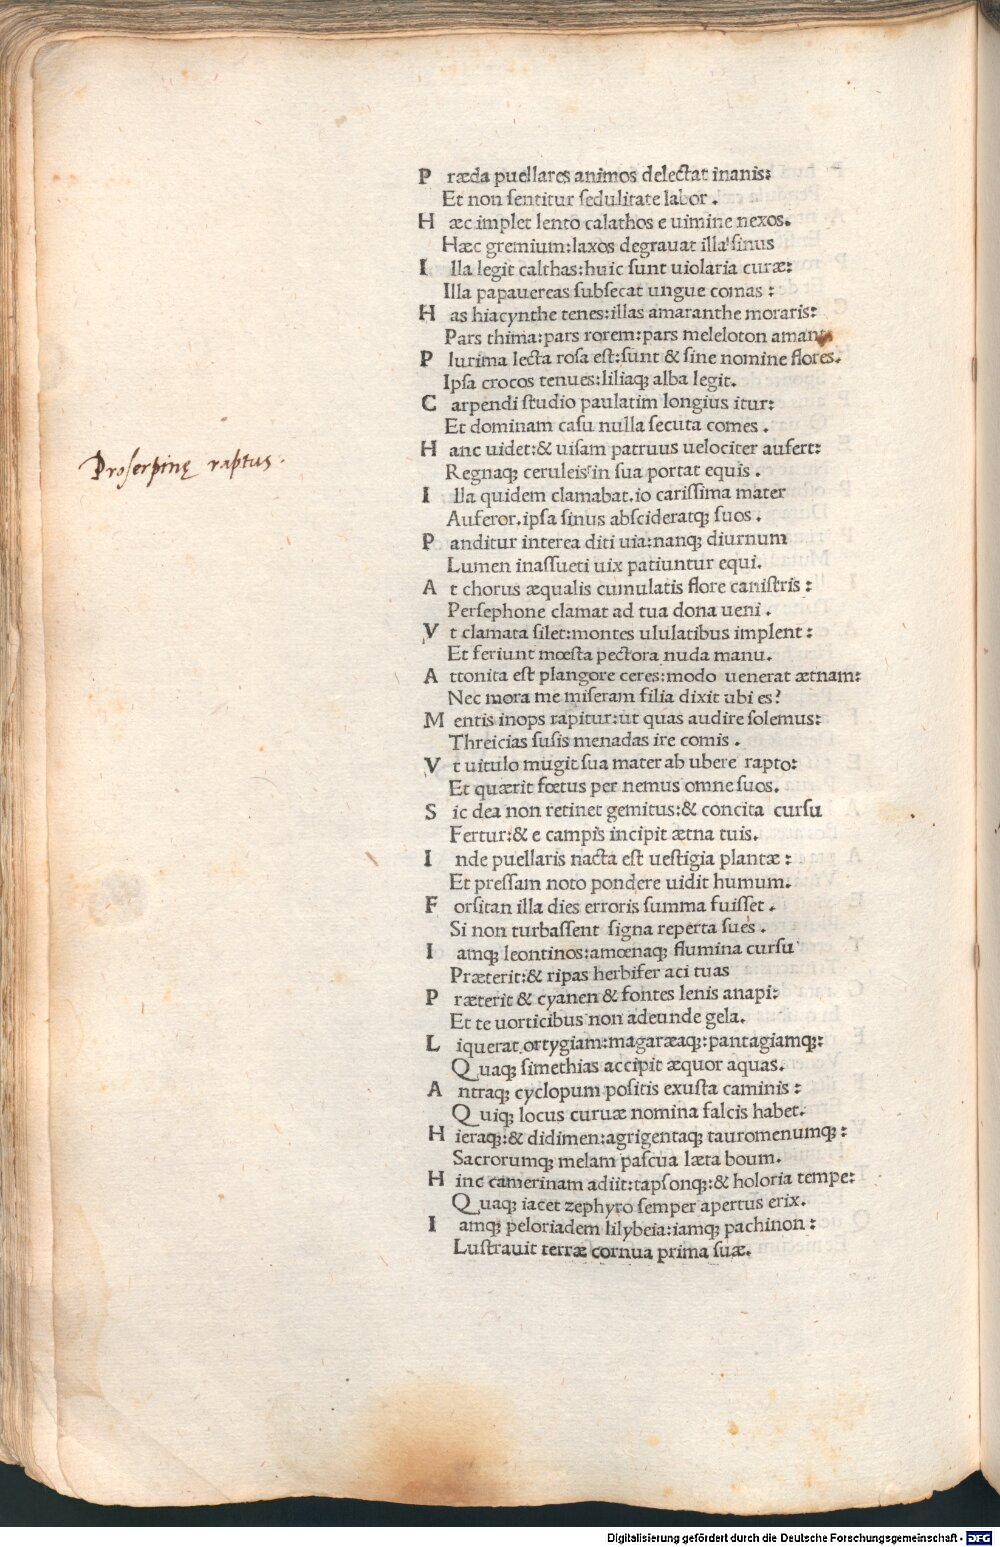 P ræda puellares animos delectat inanis:
Et non sentitur sedulitate labor .
H æc implet lento calathos e uimine nexos.
Hæc gremium:laxos degrauat illa sinus
I lla legit calthas:huic sunt uiolaria curæ:
Illa papauereas subsecat ungue comas :
H as hiacynthe tenes:illas amaranthe moraris:
Pars thima:pars rorem:pars meleloton amant.
P lurima lecta rosa est:sunt & sine nomine flores.
Ipsa crocos tenues:liliaq; alba legit.
C arpendi studio paulatim longius itur:
Et dominam casu nulla secuta comes .
H anc uidet:& uisam patruus uelociter aufert:
Proserpinę raptus.
Regnaq; ceruleis in sua portat equis .
I lla quidem clamabat.io carissima mater
Auferor.ipsa sinus abscideratq; suos .
P anditur interea diti uia:nanq; diurnum
Lumen inassueti uix patiuntur equi.
A t chorus æqualis cumulatis flore canistris :
Persephone clamat ad tua dona ueni .
V t clamata silet:montes ululatibus implent :
Et feriunt mœsta pectora nuda manu.
A ttonita est plangore ceres:modo uenerat ætnam:
Nec mora me miseram filia dixit ubi es?
M entis inops rapitur:ut quas audire solemus:
Threicias fusis menadas ire comis .
V t uitulo mugit sua mater ab ubere rapto:
Et quærit fœtus per nemus omne suos.
S ic dea non retinet gemitus:& concita cursu
Fertur:& e campis incipit ætna tuis.
I nde puellaris nacta est uestigia plantæ :
Et pressam noto pondere uidit humum.
F orsitan illa dies erroris summa fuisset .
Si non turbassent signa reperta sues .
I amq; leontinos:amœnaq; flumina cursu
Præterit:& ripas herbifer aci tuas
P ræterit & cyanen & fontes lenis anapi:
Et te uorticibus non adeunde gela.
L iquerat ortygiam:magaræaq;:pantagiamq;:
Quaq; simethias accipit æquor aquas.
A ntraq; cyclopum positis exusta caminis :
Quiq; locus curuæ nomina falcis habet.
H ieraq;:& didimen:agrigentaq; tauromenumq; :
Sacrorumq; melam pascua læta boum.
H inc camerinam adiit:tapsonq;:& holoria tempe:
Quaq; iacet zephyro semper apertus erix.
I amq; peloriadem lilybeia:iamq; pachinon :
Lustrauit terræ cornua prima suæ.
Digitalisierung gefördert durch die Deutsche Forschungsgemeinschaft - DFG